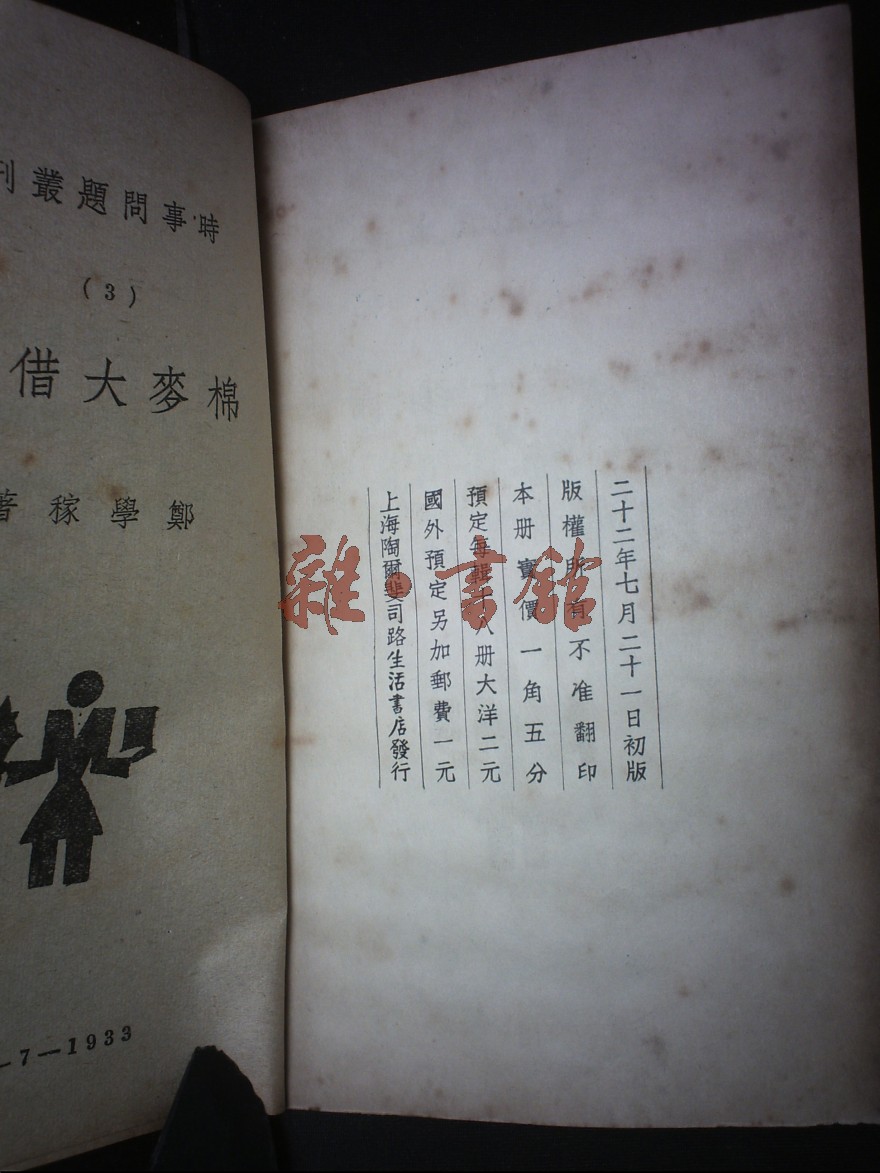 時事問題叢刊
(3)
棉麥大借
鄭學稼著
7—1933
二十二年七月二十一日初版
版權所有不准翻印
本册實價一角五分
預定每輯十八册大洋二元
國外預定另加郵費一元
上海陶爾斐司路生活書店發行
雜·書館